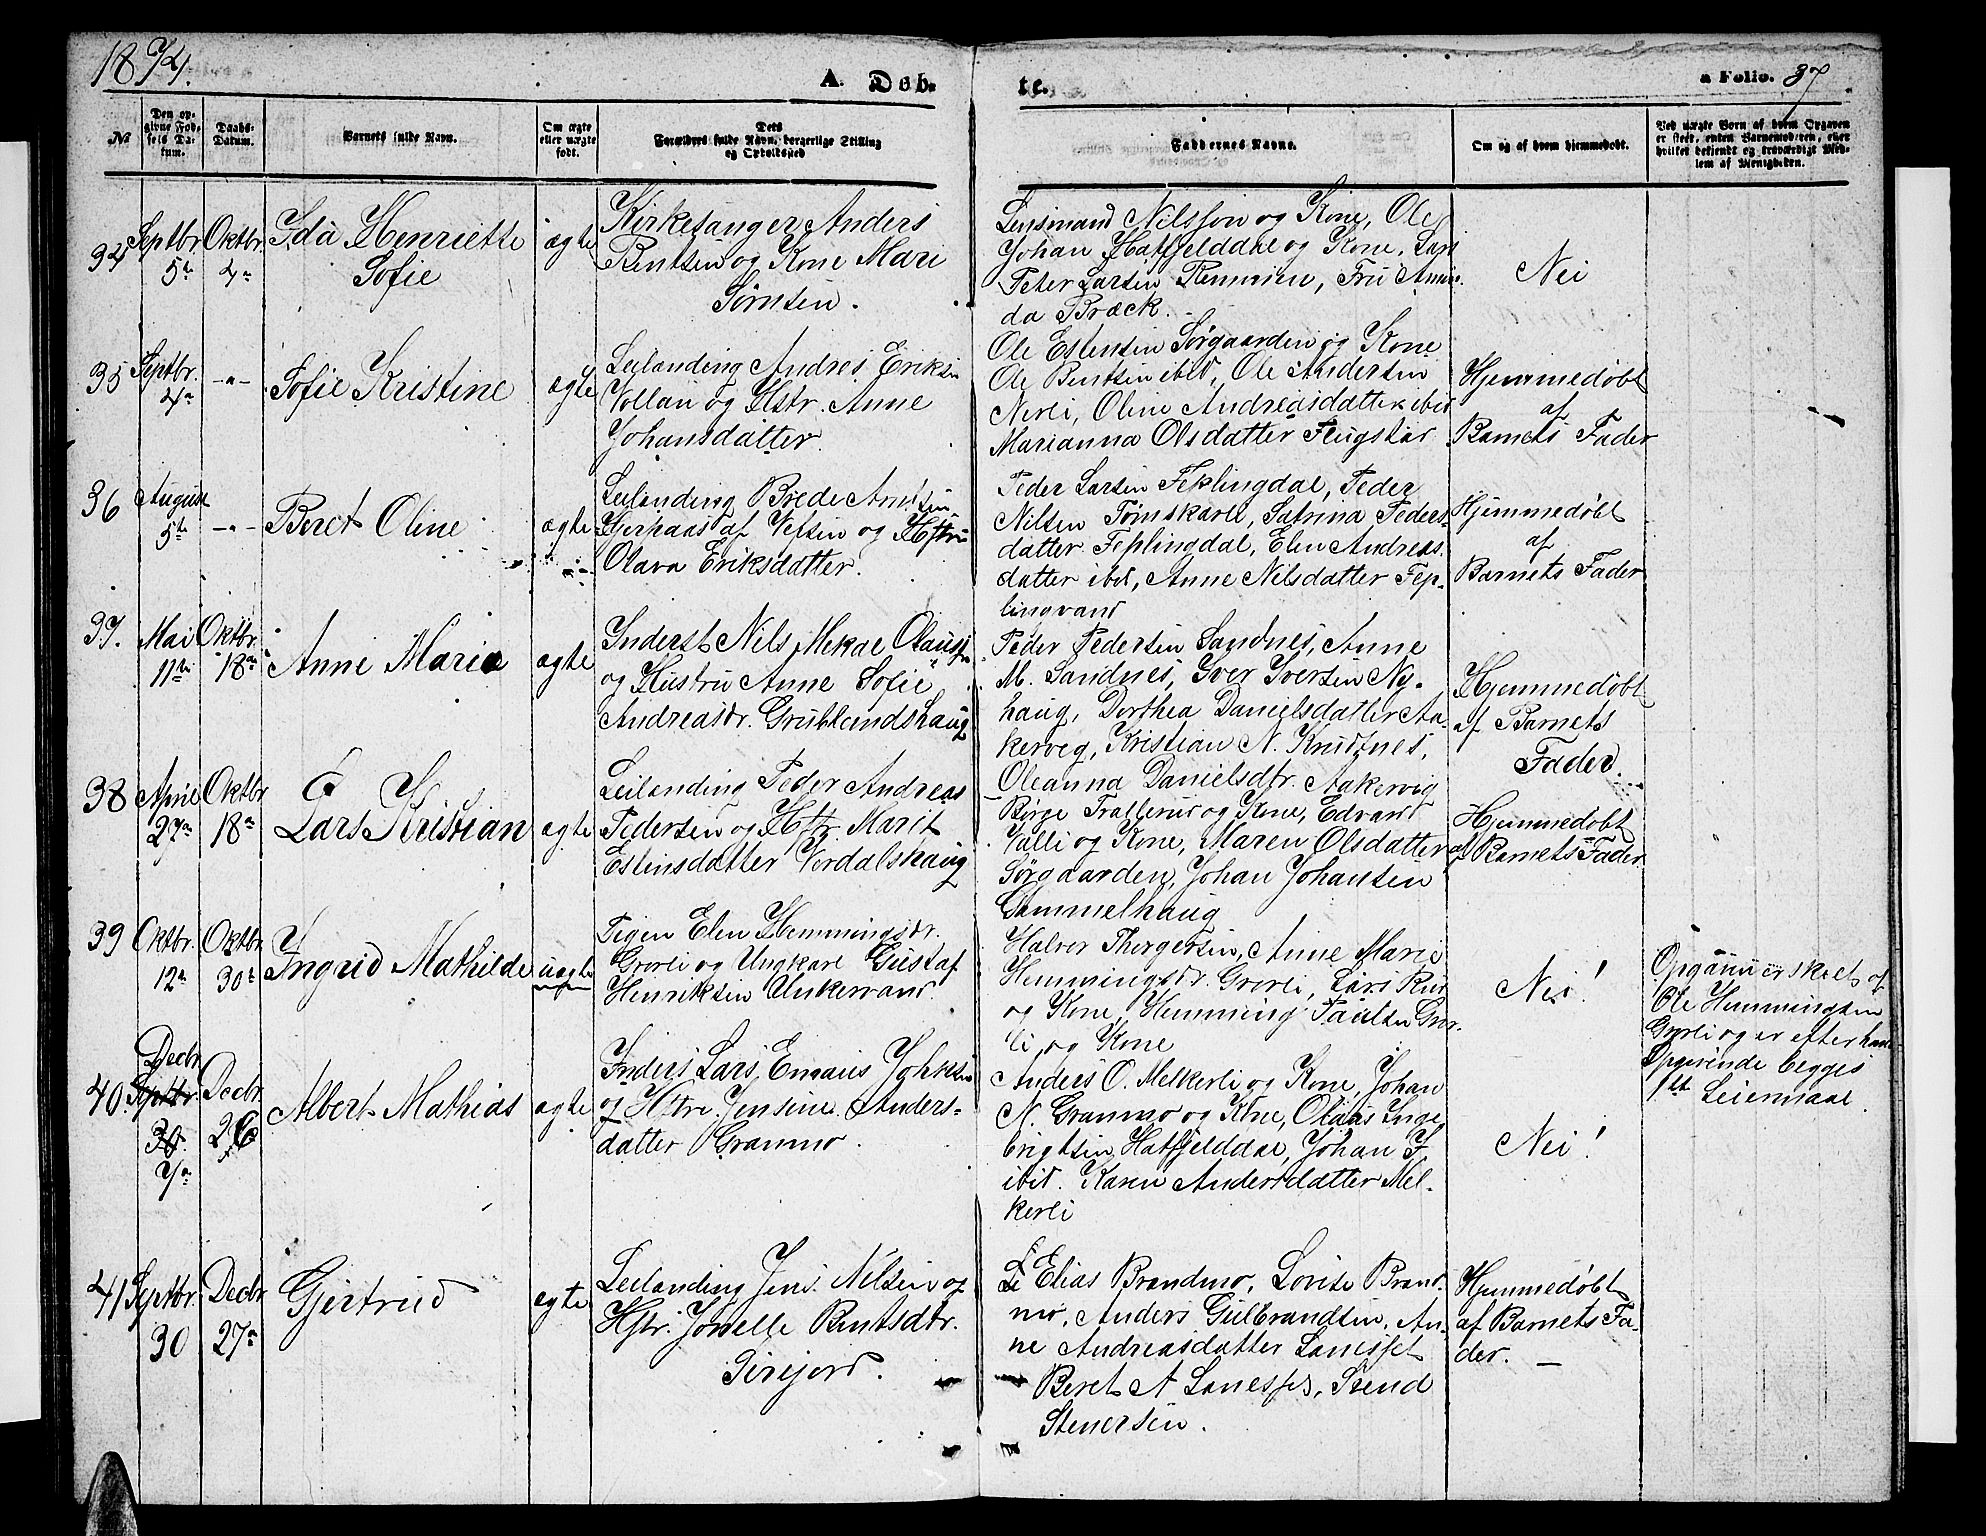 1874.
A. Døb-
te.
a Folio. 37
№
Den op-
givne Fød-
sels Da-
tum.
Daabs-
Datum.
Barnets fulde Navn.
Om ægte
eller uægte
født.
Dets
Forældres fulde Navn, borgerlige Stilling
og Opholdssted
Faddernes Navne.
Om og af hvem hjemmedøbt.
Ved uægte Børn af hvem Opgaven
er skeet, enten Barnemoderen, eller
hvilket bekjendt og troværdigt Med-
lem af Menigheden.
34
Septbr
5te
Oktbr
4de
Ida Henriette
Sofie
ægte
Kirkesanger Anders
Bentsen og Kone Mari
Sørnsen.
Lensmand Nilssøn og Kone, Ole
Johan Hatfjelddal og Kone, Lars
Peter Larsen Remmen, Fru Aman-
da Bræck.
Nei
35
Septbr.
4de
-"-
Sofie Kristine
ægte
Leilænding Andres Eriksen
Vollan og Hstr. Anne
Johansdatter.
Ole Estensen Sørgaarden og Kone
Ole Bentsen ibid, Ole Andersen
Nerli, Oline Andreasdatter ibid
Marianna Olsdatter Flugstad
Hjemmedøbt
af
Barnets Fader
36
August
5te
-"-
Beret Oline
ægte
Leilænding Brede Arntsen
af Vefsen og Hstru
Olava Eriksdatter.
Peder Larsen Feplingdal, Peder
Nilsen Tømskarel, Katrina Peders-
datter Feplingdal, Elen Andreas-
datter ibd, Anne Nilsdatter Fep-
lingvand
Hjemmedøbt
af
Barnets Fader
37.
Mai
11te
Oktbr.
18de
Anne Marie
ægte
Inderst Nils Mekal Olausen
og Hustru Anne Sofie
Andreasdr. Grublandshaug
Peder Pedersen Sandnes, Anne
M. Sandnes, Iver Iversen Ny-
haug, Dorthea Danielsdatter Aa-
kervig, Kristian N. Krudtnes,
Oleanna Danielsdtr. Aakervig
Hjemmedøbt
af Barnets
Fader.
38
April
27de
Oktbr
18de
Lars Kristian
ægte
Leilænding Peder Andreas
Pedersen og Hstr. Marit
Estensdatter Vordalshaug
Børge Trallerud og Kone, Edvard
Valli og Kone, Maren Olsdatter
Sørgaarden, Johan Johansen
Gammelhaug
Hjemmedøbt
af Barnets Fader
39
Oktbr.
12te
Oktbr
30te
Ingrid Mathilde
uægte
Pigen Elen Hemmingsdr.
Grorli og Ungkarl Gustaf
Henriksen Unkervand.
Halvor Thorgersen, Anne Marie
Hemmingsdr. Grorli, Lars Rus
og Kone, Hemming Paulsen Gror-
li og Kone
Nei!
Opgaven er skeet af
Ole Hemmingsen
Grorli og er efter hans
Opgivende begges
1ste Leiermaal
40
Decbr
Septbr
30.
7de
Decbr
26
Albert Mathias
ægte
Inders. Lars Emaus Johnsen
og Hstru. Jensine Anders-
datter Granmo.
Anders O. Melkerli og Kone, Johan
N. Granmo og Kone, Olaus Inge-
brigtsen Hatfjelddal, Johan J.
ibid. Karen Andersdatter Mel-
kerli
Nei!
41
Septbr.
30
Decbr
27de
Gjertrud
ægte
Leilænding Jens Nilsen og
Hstr. Jonelle Bentsdtr.
Sirijord.
Elias Brandmo, Lovise Brand-
mo, Anders Gulbrandsen, An-
ne Andreasdatter Lanesset
Beret A Lanesset, Svend
Stenersen.
Hjemmedøbt
af Barnets Fa-
der. —